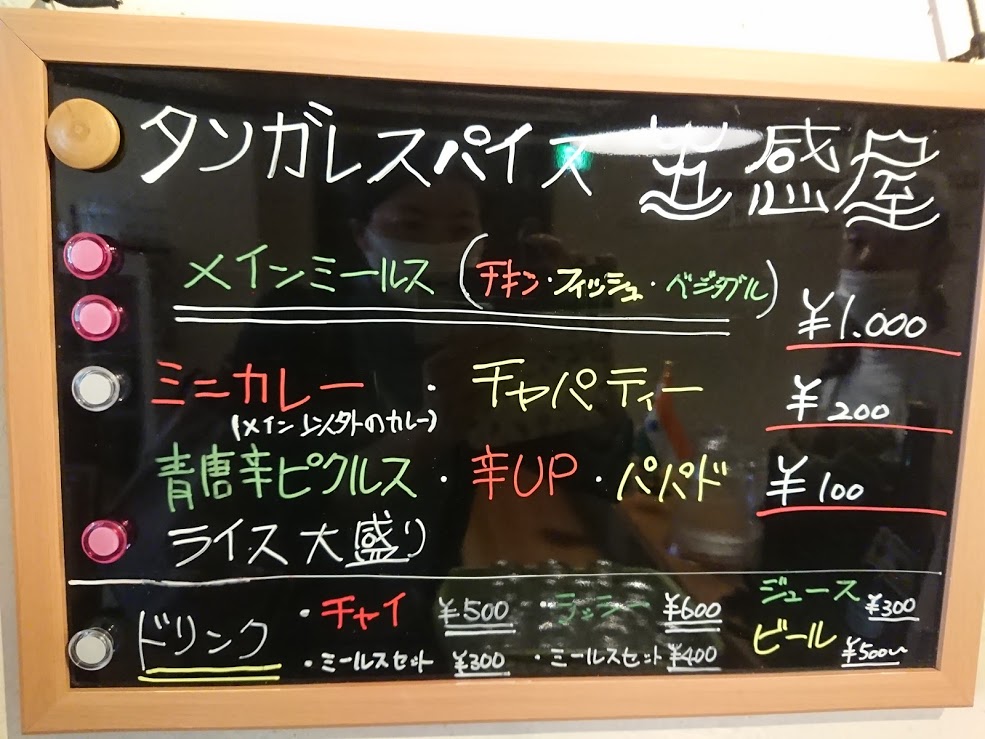 タンガレスパイス 感屋
メインミールス (チキン・フィッシュ・ベジタブル) ¥1.000
ミニカレー ・ チャパティー ¥200
(メイン以外のカレー)
青唐辛ピクルス ・ 辛UP ・ パパド ¥100
ライス大盛り
ドリンク
・チャイ ¥500 ・ラッシー ¥600
・ミールスセット ¥300 ・ミールスセット ¥400
ジュース ¥300
ビール ¥500〜